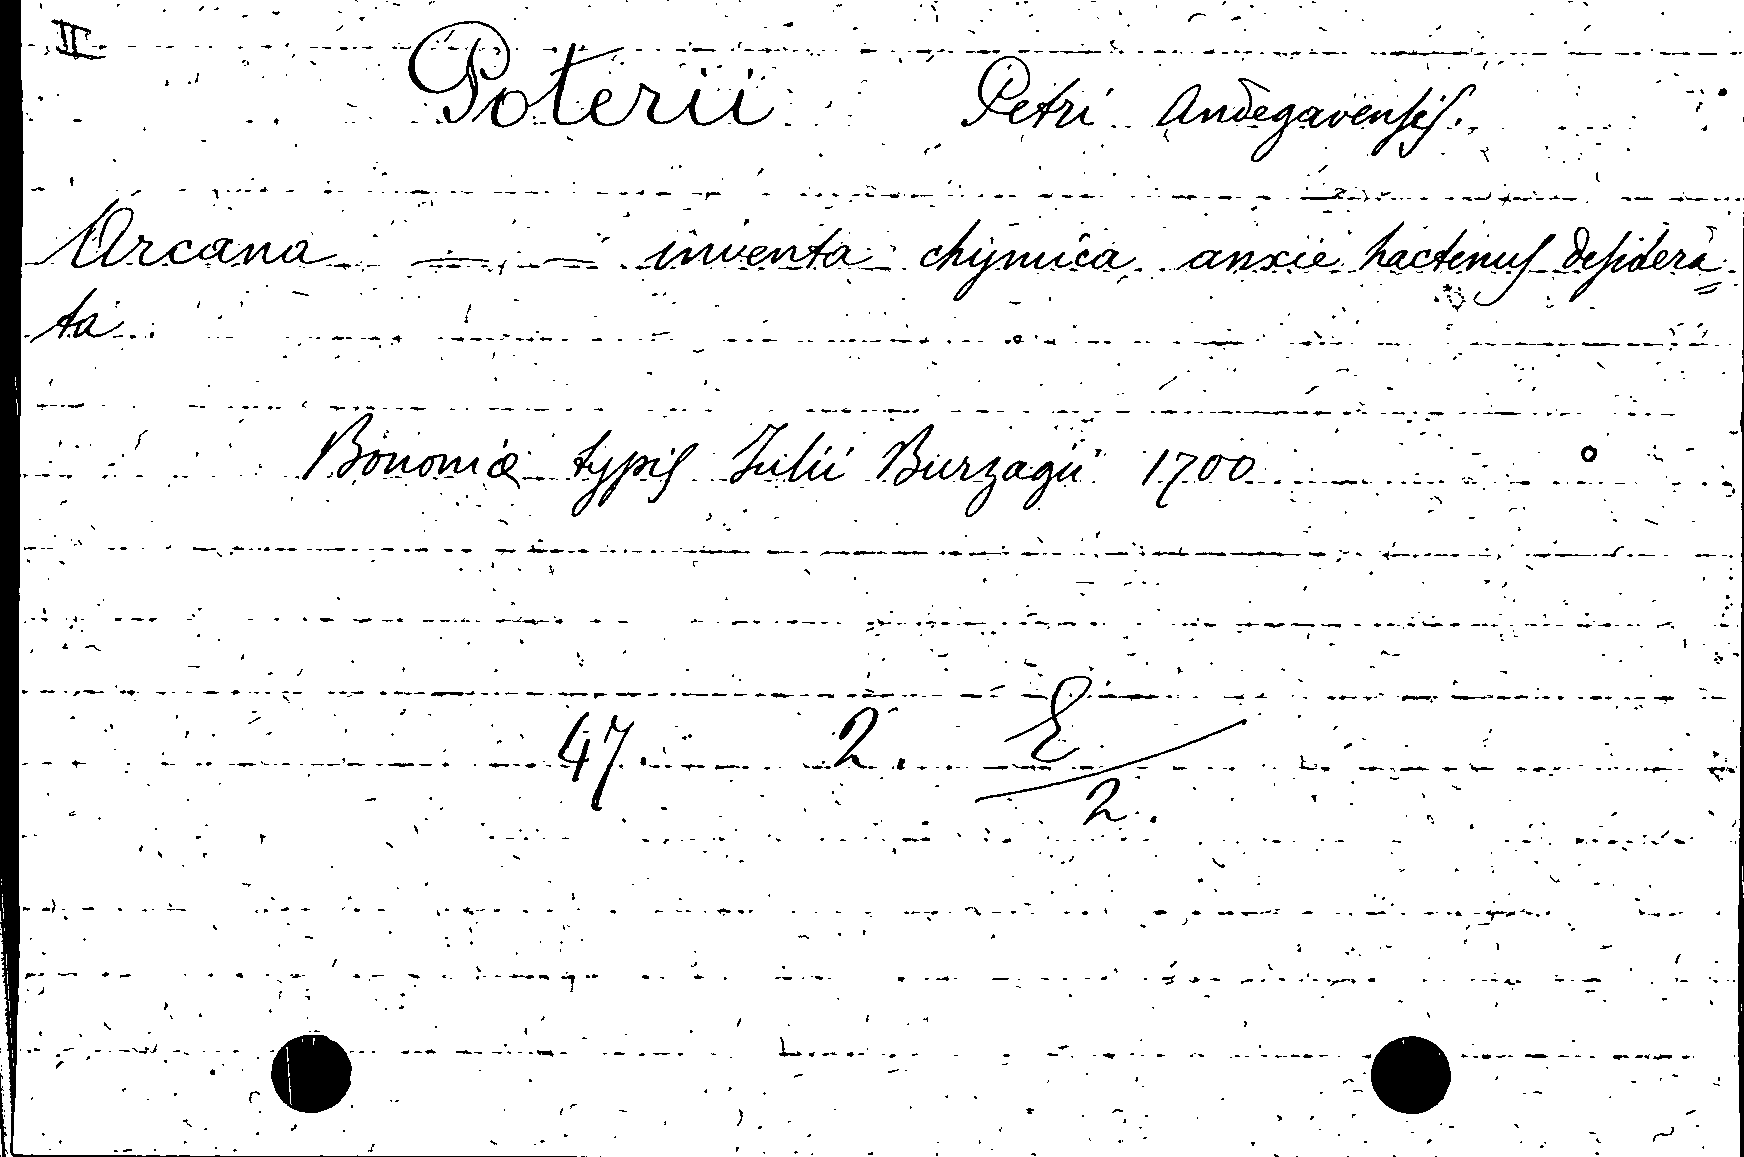 II
Poterii Petri Andegavensis.
Arcana — — inventa chymica anxie hactenus desidera=
ta.
Bononiæ typis Julii Burzagii 1700
47. 2. E/2.